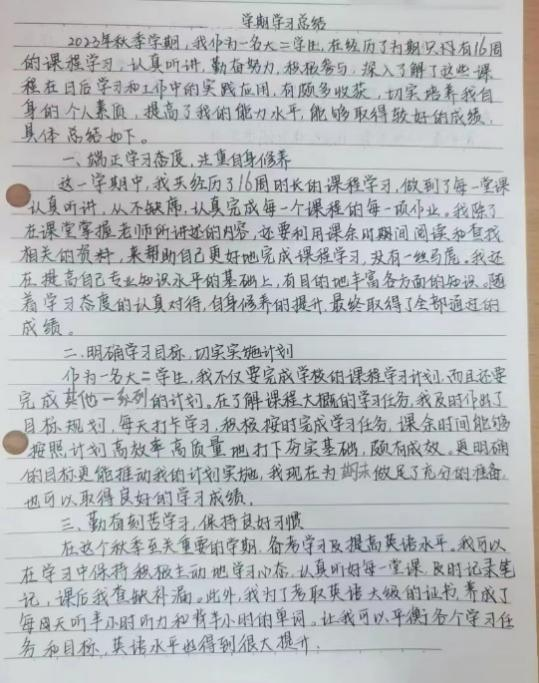 学期学习总结
2023年秋季学期,我作为一名大二学生,在经历了为期只得有16周
的课程学习,认真听讲,勤奋努力,积极参与,深入了解了这些课
程在日后学习和工作中的实践应用,有颇多收获,切实培养我自
身的个人素质,提高了我的能力水平,能够取得较好的成绩,
具体总结如下。
一、端正学习态度,注重自身修养
这一学期中,我共经历了16周时长的课程学习,做到了每一堂课
认真听讲,从不缺席,认真完成每一个课程的每一项作业。我除了
在课堂掌握老师所讲述的内容,还要利用课余时期间阅读和查找
相关的资料,来帮助自己更好地完成课程学习,没有一丝马虎。我还
在提高自己专业知识水平的基础上,有目的地丰富各方面的知识。随
着学习态度的认真对待,自身修养的提升,最终取得了全部通过的
成绩。
二、明确学习目标,切实实施计划
作为一名大二学生,我不仅要完成学校的课程学习计划,而且还要
完成其他一系列的计划。在了解课程大概的学习任务,我及时作出了
目标规划,每天打卡学习,积极按时完成学习任务,课余时间能够
按照计划高效率高质量地打下夯实基础,颇有成效。更明确
的目标更能推动我的计划实施,我现在为期末做足了充分的准备,
也可以取得良好的学习成绩。
三、勤奋刻苦学习,保持良好习惯
在这个秋季至关重要的学期,备考学习及提高英语水平。我可以
在学习中保持积极主动地学习心态,认真听好每一堂课,及时记录笔
记,课后我查缺补漏。此外,我为了考取英语六级的证书,养成了
每日天听半小时听力和背半小时的单词。让我可以平衡各个学习任
务和目标,英语水平也得到很大提升.